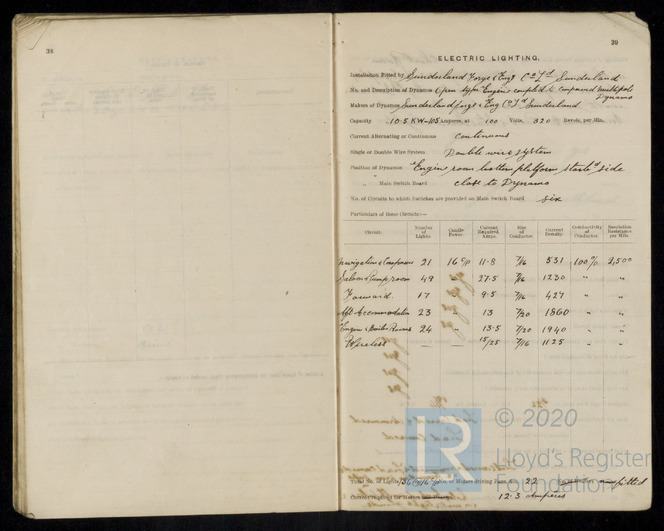 38
39
ELECTRIC LIGHTING.
Installation Fitted by Sunderland Forge & Engg Co Ld Sunderland
No. and Description of Dynamos Open type Engine coupled to compound multipole Dynamo
Makers of Dynamos Sunderland forge & Eng Co Ld Sunderland
Capacity 10.5 KW-105 Amperes, at 100 Volts, 320 Revols. per Min.
Current Alternating or Continuous Continuous
Single or Double Wire System Double wire system
Position of Dynamos Engine room bottom platform starbd side
" Main Switch Board close to Dynamo
No. of Circuits to which Switches are provided on Main Switch Board six
Particulars of these Circuits:—
Circuit. Number of Lights. Candle Power. Current Required Amps. Size of Conductor. Current Density. Conductivity of Conductor. Insulation Resistance per Mile.
Navigation & Compasses 21 16 c/p 11.8 7/16 531 100% 2,500
Saloon & Pumproom 49 " 27.5 7/16 1230 " "
Forward 17 " 9.5 7/16 427 " "
Aft Accommodation 23 " 13 7/20 1860 " "
Engine & Boiler Rooms 24 " 13.5 7/20 1940 " "
Wireless — — 15/25 7/16 1125 " "
Total No. of Lights 136 16 c/p No. of Motors driving Fans, &c. 22 fitted
Current required for Motors 12.3 Amperes
LR
© 2020
Lloyd's Register
Foundation